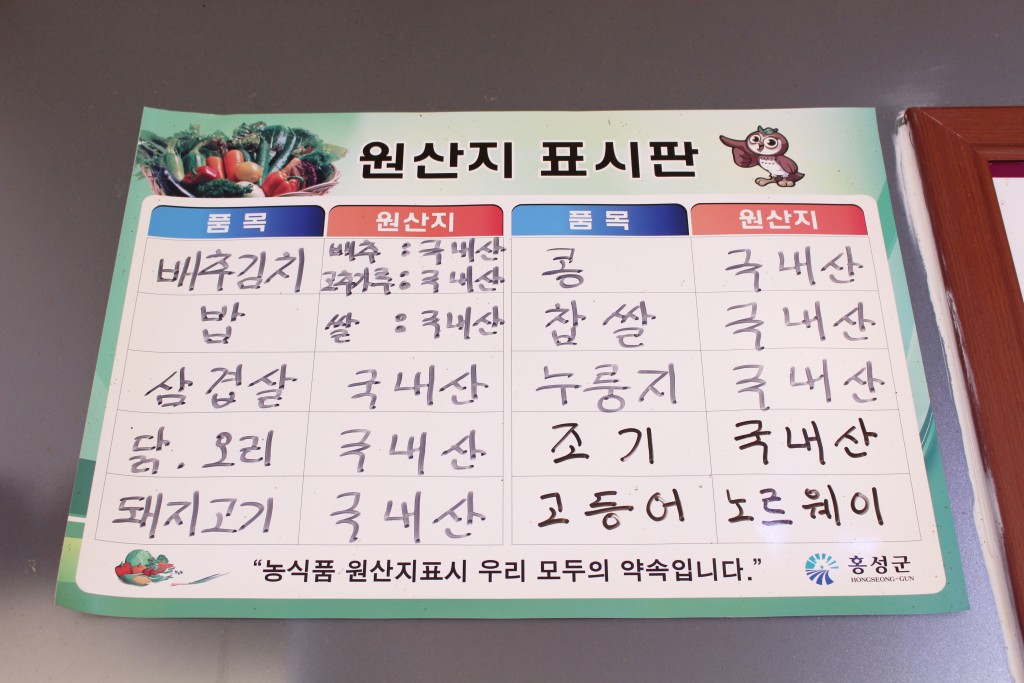 원산지 표시판
품목 원산지 품목 원산지
배추김치 배추 : 국내산 고추가루 : 국내산 콩 국내산
밥 쌀 : 국내산 찹쌀 국내산
삼겹살 국내산 누룽지 국내산
닭. 오리 국내산 조기 국내산
돼지고기 국내산 고등어 노르웨이
“농식품 원산지표시 우리 모두의 약속입니다.”
홍성군
HONGSEONG-GUN